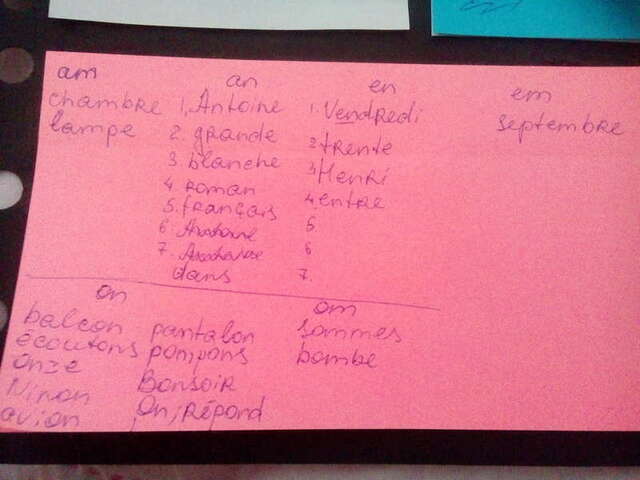 am an en em
chambre 1. Antoine 1. Vendredi septembre
lampe 2. grande 2. trente
3. blanche 3. Henri
4. roman 4. entre
5. français 5.
6. 6.
7. 7.
dans
on om
balcon pantalon sommes
écoutons pompons bombe
onze Bonsoir
Ninon On, répond
avion